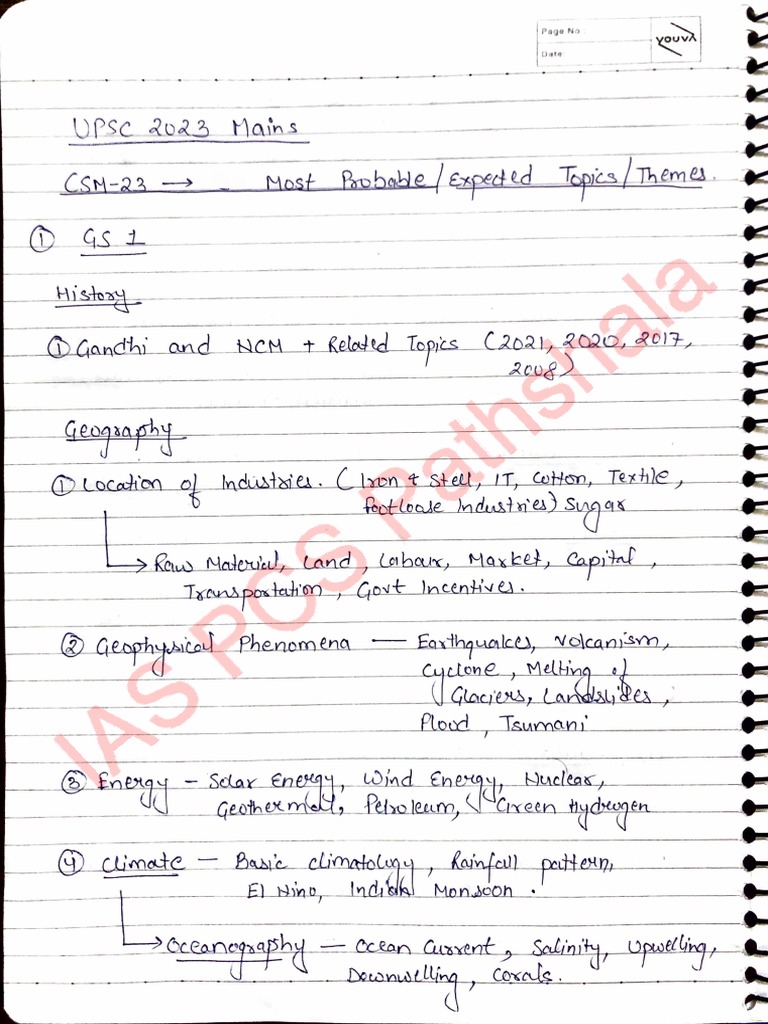 Page No
Date:
YOUVA
UPSC 2023 Mains
CSM-23 → - Most Probable/Expected Topics/Themes.
① GS 1
History
① Gandhi and NCM + Related Topics (2021, 2020, 2017,
2008)
Geography
① Location of Industries. (Iron & Stell, IT, Cotton, Textile,
footloose Industries) Sugar
→ Raw Material, Land, Labour, Market, Capital,
Transportation, Govt Incentives.
② Geophysical Phenomena — Earthquakes, Volcanism,
Cyclone, Melting of
Glaciers, Landslides,
Flood, Tsumani
③ Energy - Solar Energy, Wind Energy, Nuclear,
Geothermal, Petroleum, Green Hydrogen
④ Climate - Basic climatology, Rainfall pattern,
El Nino, Indian Monsoon.
→ Oceanography - Ocean Current, Salinity, Upwelling,
Downwelling, Corals.
IAS PCS Pathshala